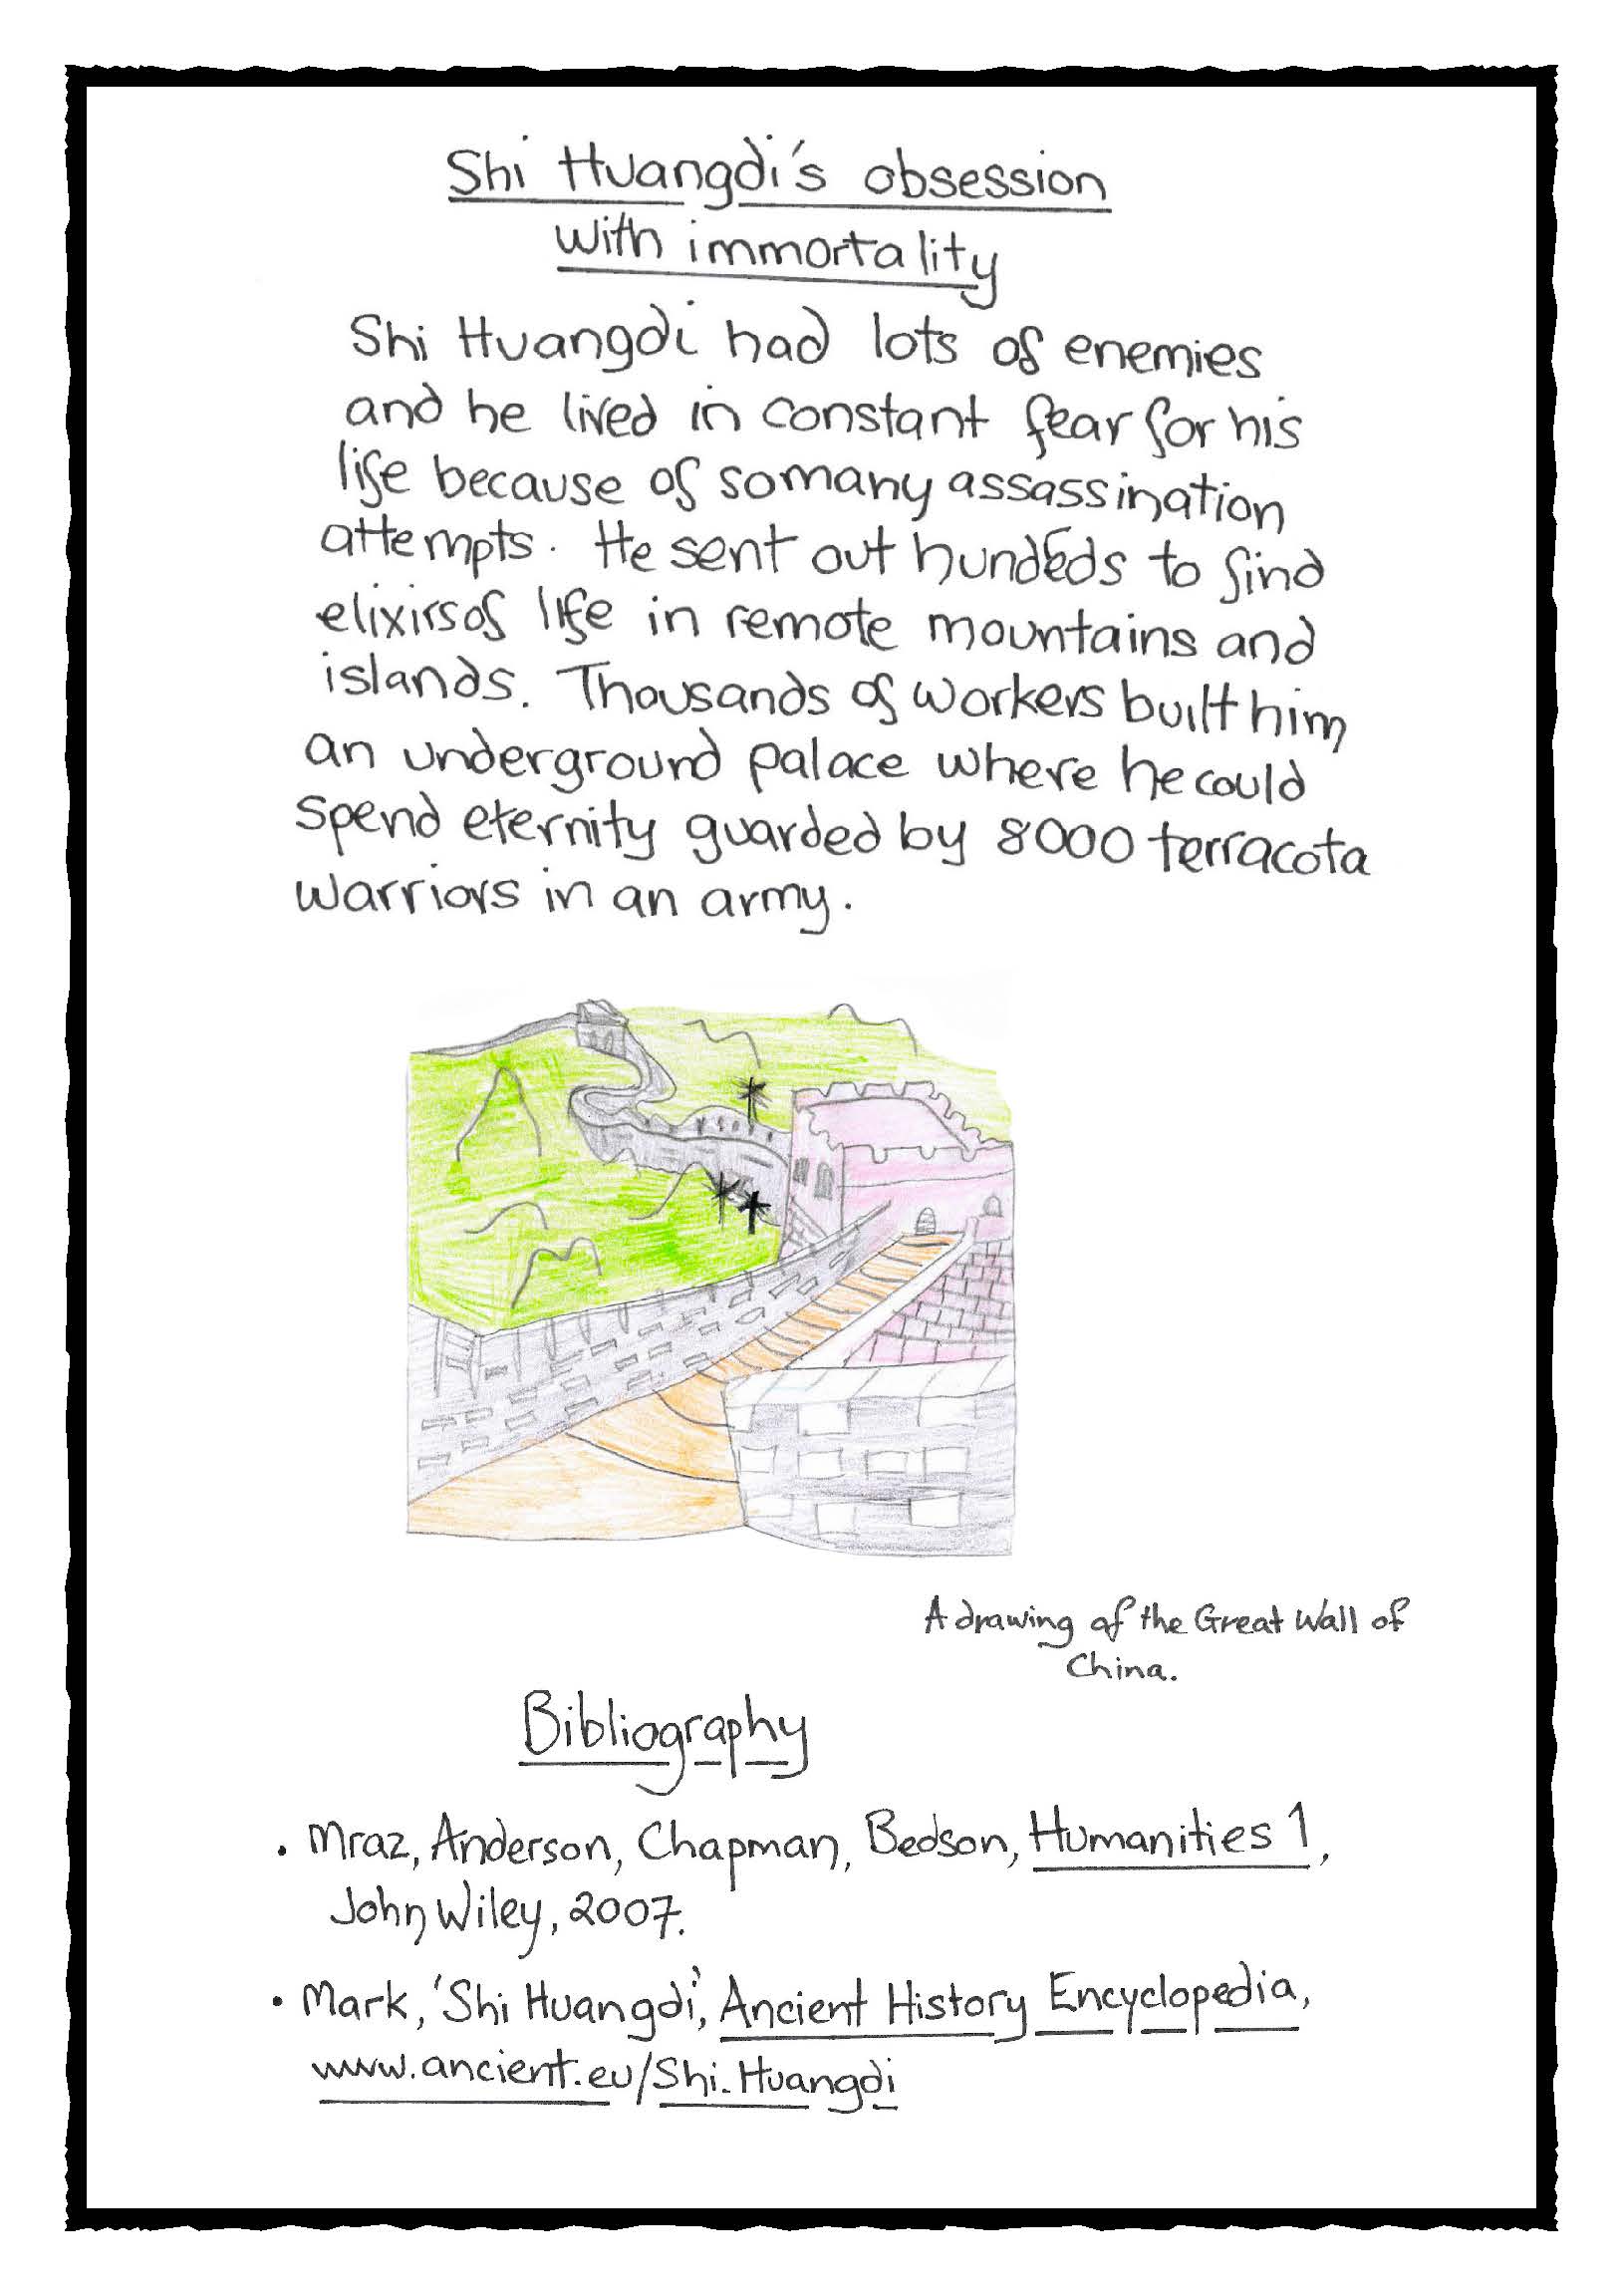 Shi Huangdi's obsession
with immortality
Shi Huangdi had lots of enemies
and he lived in constant fear for his
life because of somany assassination
attempts. He sent out hundeds to find
elixirsof life in remote mountains and
islands. Thousands of workers built him
an underground palace where he could
spend eternity guarded by 8000 terracota
warriors in an army.
A drawing of the Great Wall of
China.
Bibliography
• Mraz, Anderson, Chapman, Bedson, Humanities 1,
John Wiley, 2007.
• Mark, 'Shi Huangdi', Ancient History Encyclopedia,
www.ancient.eu/Shi_Huangdi